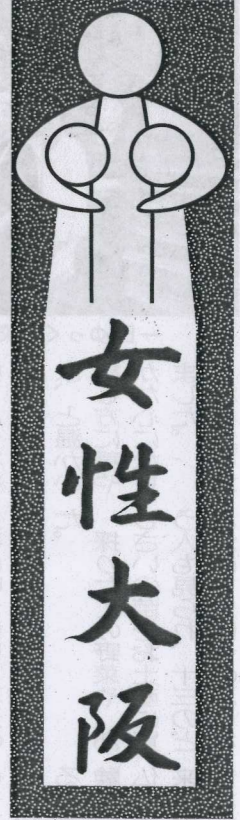 女性大阪